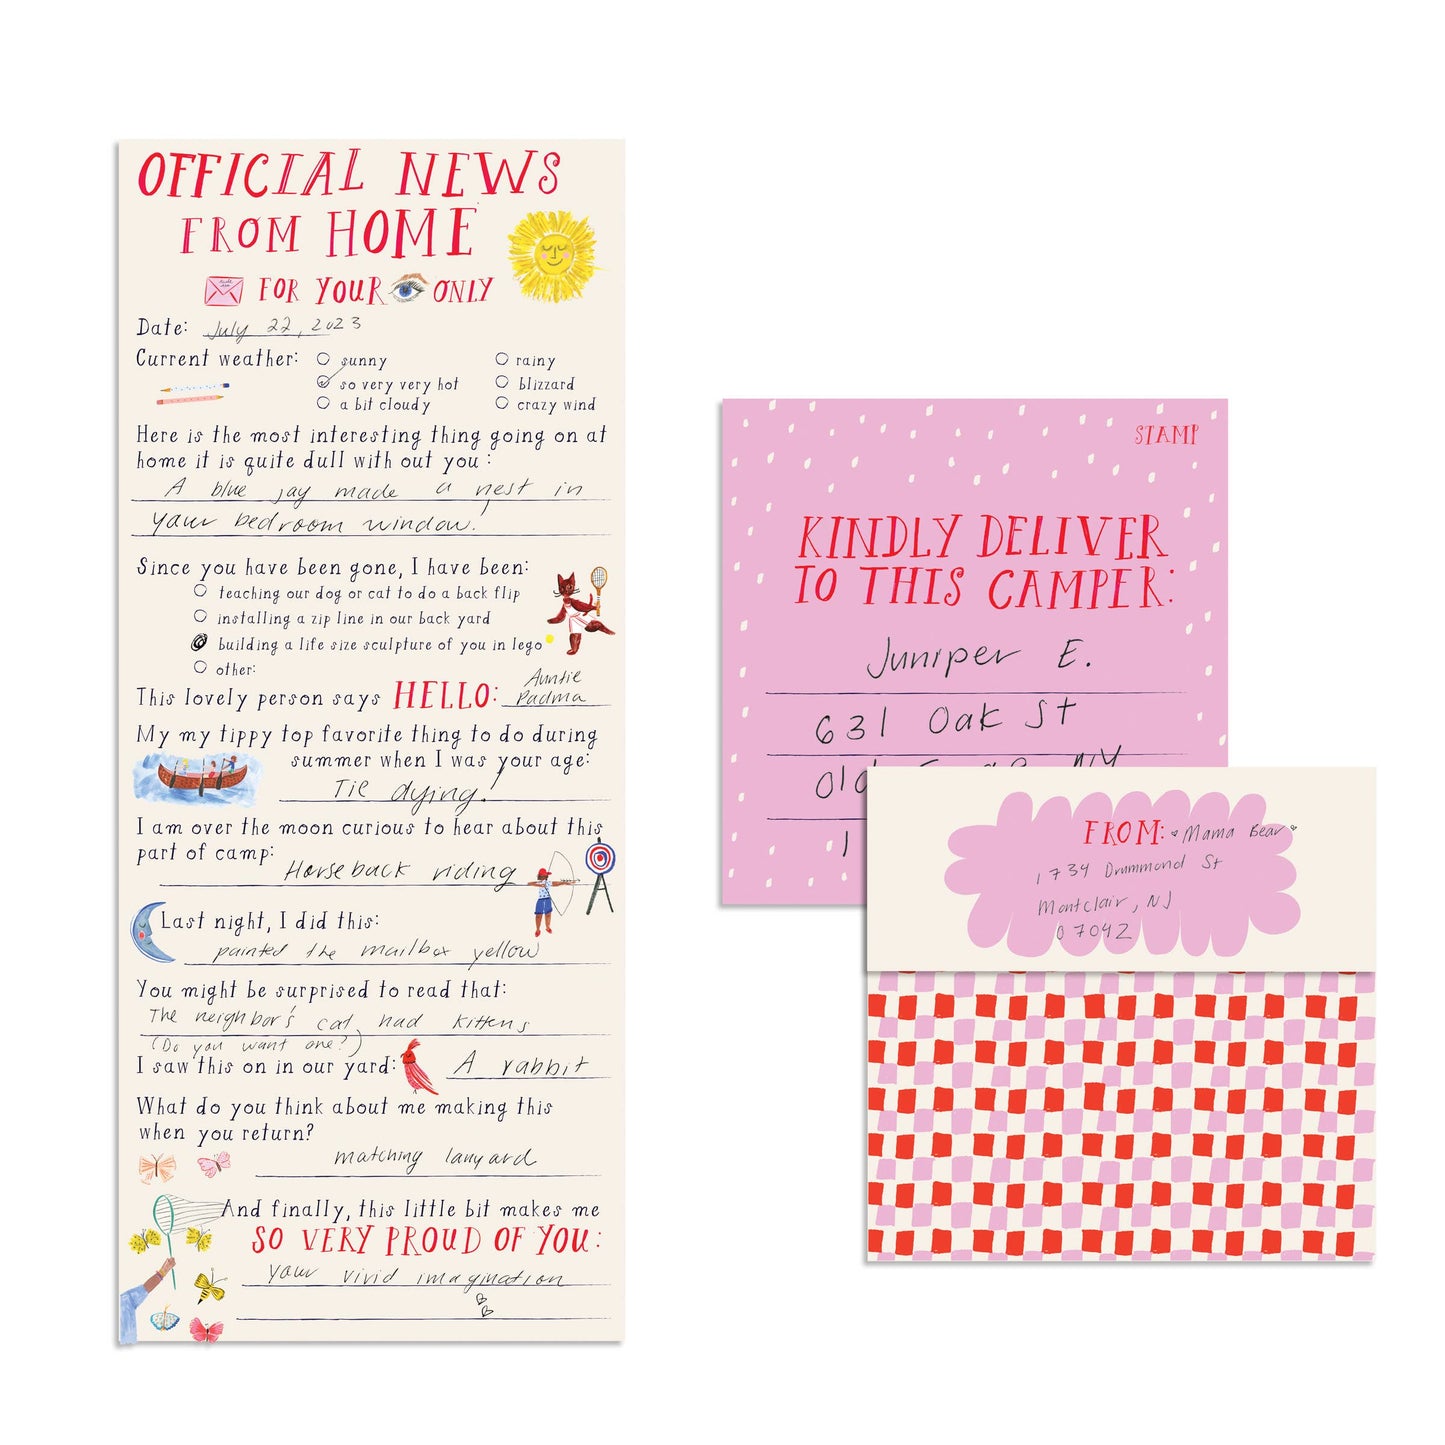 OFFICIAL NEWS
FROM HOME
FOR YOUR ONLY
Date: July 22, 2023
Current weather: sunny rainy
so very very hot blizzard
a bit cloudy crazy wind
Here is the most interesting thing going on at
home it is quite dull with out you :
A blue jay made a nest in
your bedroom window!
Since you have been gone, I have been:
teaching our dog or cat to do a back flip
installing a zip line in our back yard
building a life size sculpture of you in lego
other:
Auntie
This lovely person says HELLO: Padma
My my tippy top favorite thing to do during
summer when I was your age:
Tie dying!
I am over the moon curious to hear about this
part of camp:
Horseback riding
Last night, I did this:
painted the mailbox yellow
You might be surprised to read that:
The neighbor's cat had kittens
(Do you want one?)
I saw this on in our yard: A rabbit
What do you think about me making this
when you return?
matching lanyard
And finally, this little bit makes me
SO VERY PROUD OF YOU:
your vivid imagination
STAMP
KINDLY DELIVER
TO THIS CAMPER:
Juniper E.
631 Oak St
Old NY
1
FROM: Mama Bear
1734 Drummond St
Montclair, NJ
07042